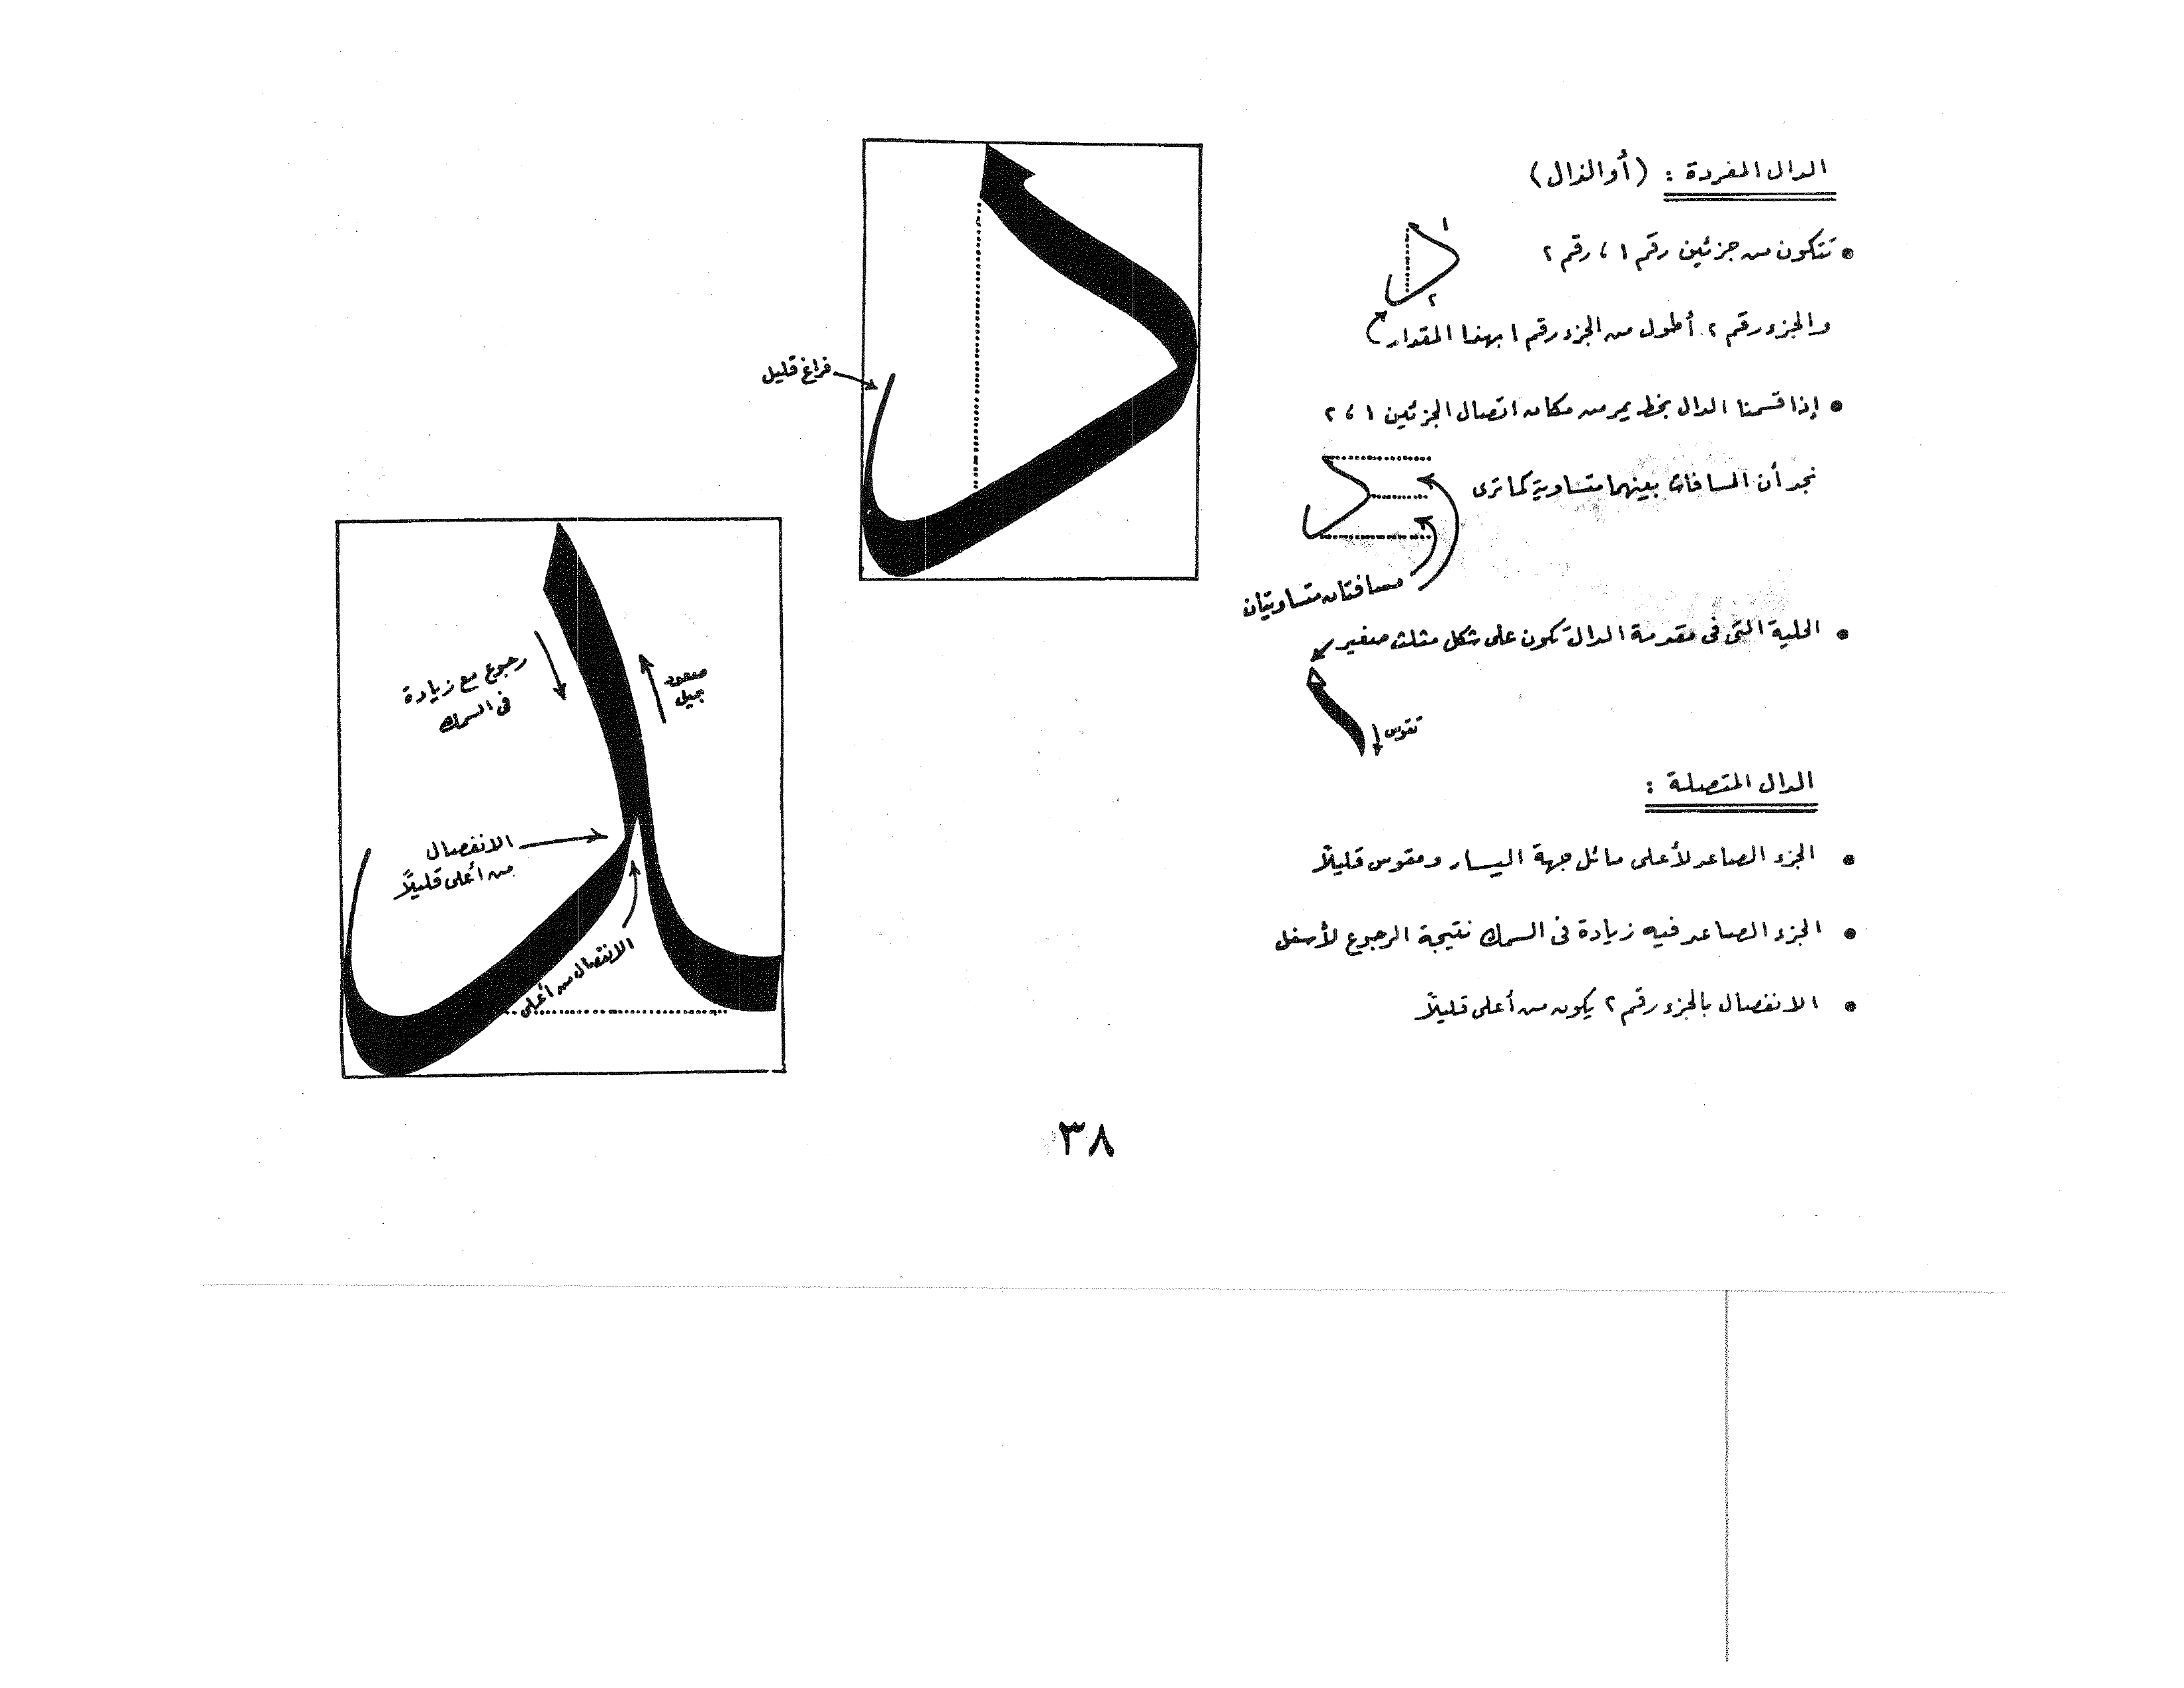 الدال المفردة : (أو الذال)
• تتكون من جزئين رقم ١ ، رقم ٢
١
٢
والجزء رقم ٢ أطول من الجزء رقم ١ بهذا المقدار
• إذا قسمنا الدال بخط يمر من مكان اتصال الجزئين ١ ، ٢
نجد أن المسافات بينهما متساوية كما ترى
مسافتان متساويتان
• الحلية التى فى مقدمة الدال تكون على شكل مثلث صغير
تقوس
الدال المتصلة :
• الجزء الصاعد لأعلى مائل جهة اليسار ومقوس قليلاً
• الجزء الصاعد فيه زيادة فى السمك نتيجة الرجوع لأسفل
• الانفصال بالجزء رقم ٢ يكون من أعلى قليلاً
فراغ قليل
صعود
بميل
رجوع مع زيادة
فى السمك
الانفصال
من أعلى قليلاً
الانفصال من أعلى
٣٨